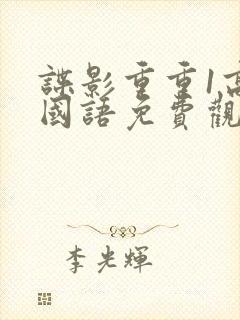 諜影重重1高
國語免費觀
李光輝